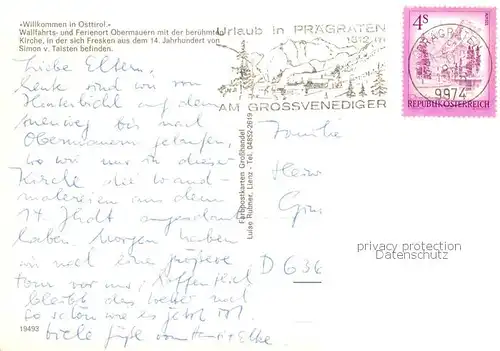 »Willkommen in Osttirol.«
Wallfahrts- und Ferienort Obermauern mit der berühmten
Kirche, in der sich Fresken aus dem 14. Jahrhundert von
Simon v. Taisten befinden.
Urlaub in PRÄGRATEN
1312 m
AM GROSSVENEDIGER
4S
REPUBLIK ÖSTERREICH
PRÄGRATEN
9974
Liebe Eltern,
heute sind wir von
Hinterbichl auf dem
bis nach
Obermauern gelaufen,
wo wir uns in dieser
Kirche die Wand-
malereien aus dem
14. Jhdt angeschaut
haben. Morgen haben
wir noch eine größere
Tour vor uns. Hoffentlich
bleibt das Wetter noch
so schön wie es jetzt ist.
Viele Grüße von Elke
Farbpostkarten Großhandel
Luise Rubner, Lienz - Tel. 04852-2619
Familie
D 636
privacy protection
19493